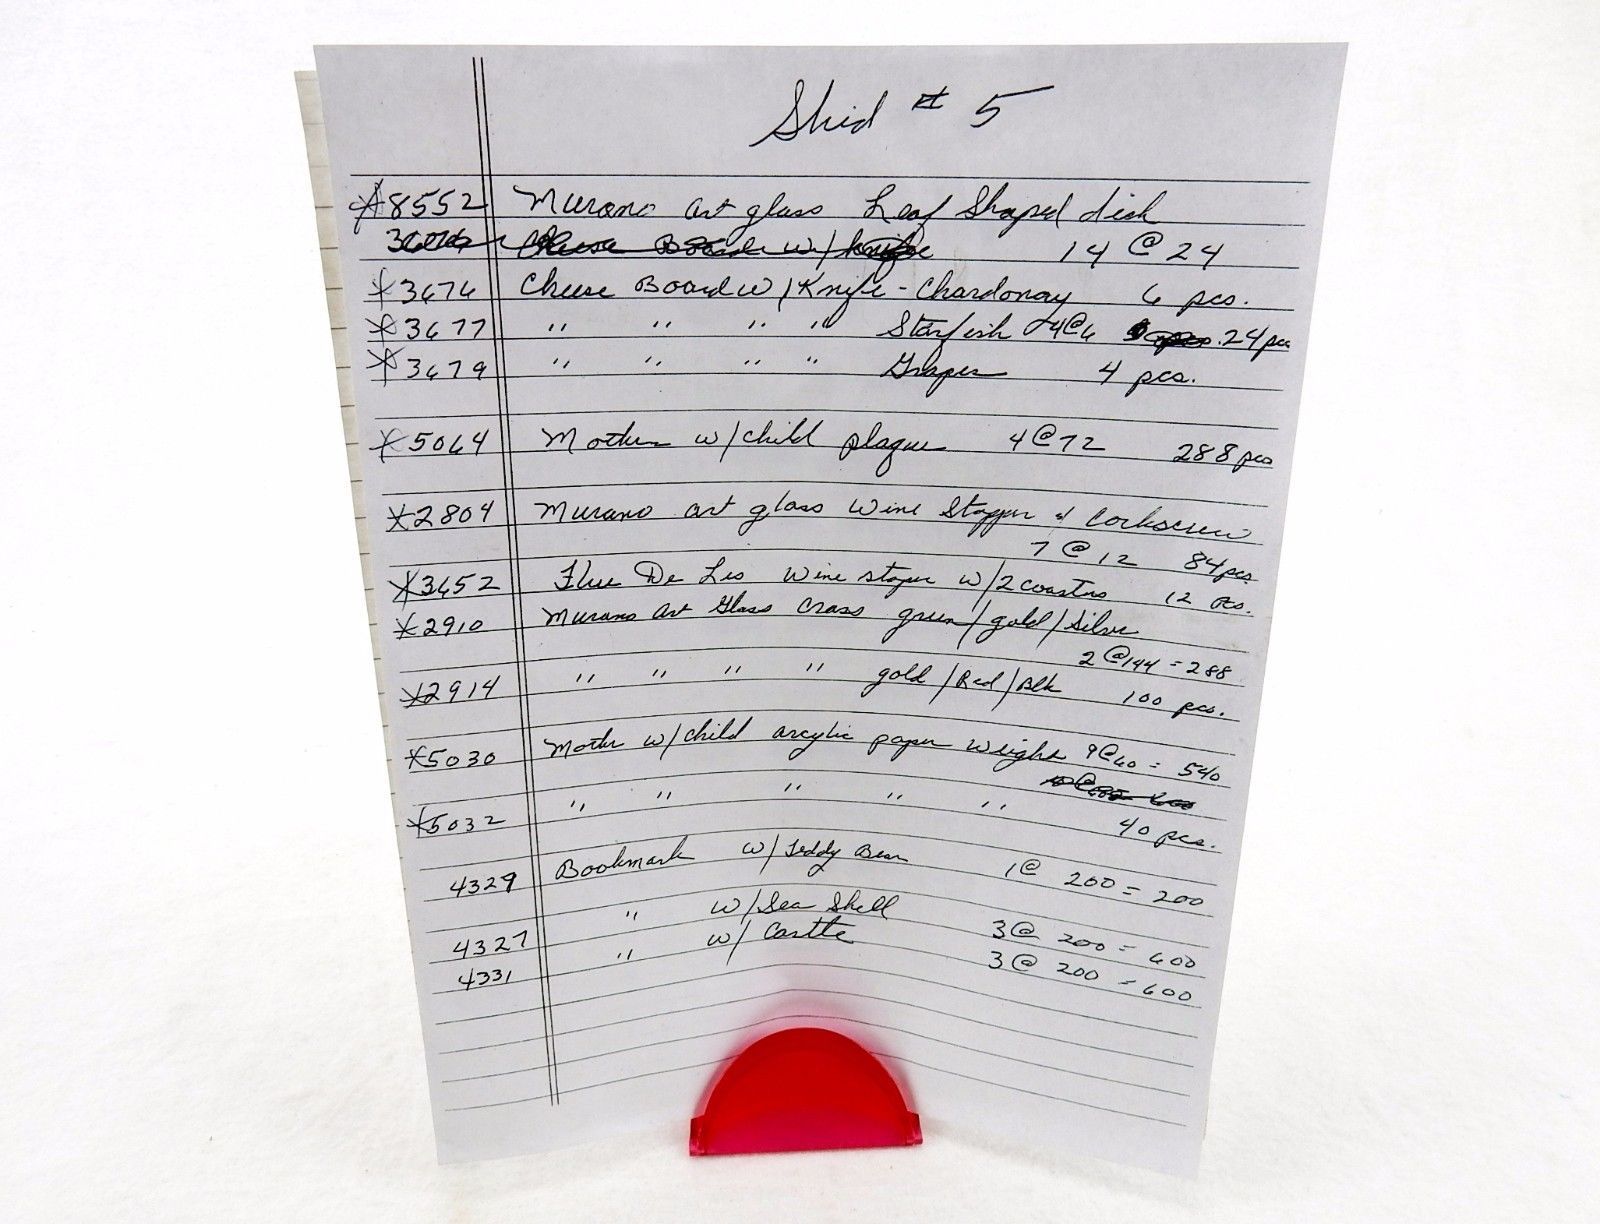 Skid # 5
*8552 Murano art glass Leaf Shaped dish
14 @ 24
*3676 Cheese Board w/Knife - Chardonay 6 pcs.
*3677 " " " " Starfish 4@6 24 pcs
*3679 " " " " Grapes 4 pcs.
*5064 Mother w/child plaque 4@72 288 pcs
*2804 Murano art glass wine Stopper & Corkscrew
7 @ 12 84 pcs
*3652 Flue De Lis wine stoper w/2 coasters 12 pcs.
*2910 Murano Art Glass Cross green/gold/Silver
2 @144 = 288
*2914 " " " " gold/Red/Blk 100 pcs.
*5030 Mother w/child arcylic paper weight 9@60 = 540
*5032 " " " " " 40 pcs.
4329 Bookmark w/Teddy Bear 1@ 200 = 200
4327 " w/Sea Shell 3@ 200 = 600
4331 " w/ Castle 3@ 200 = 600